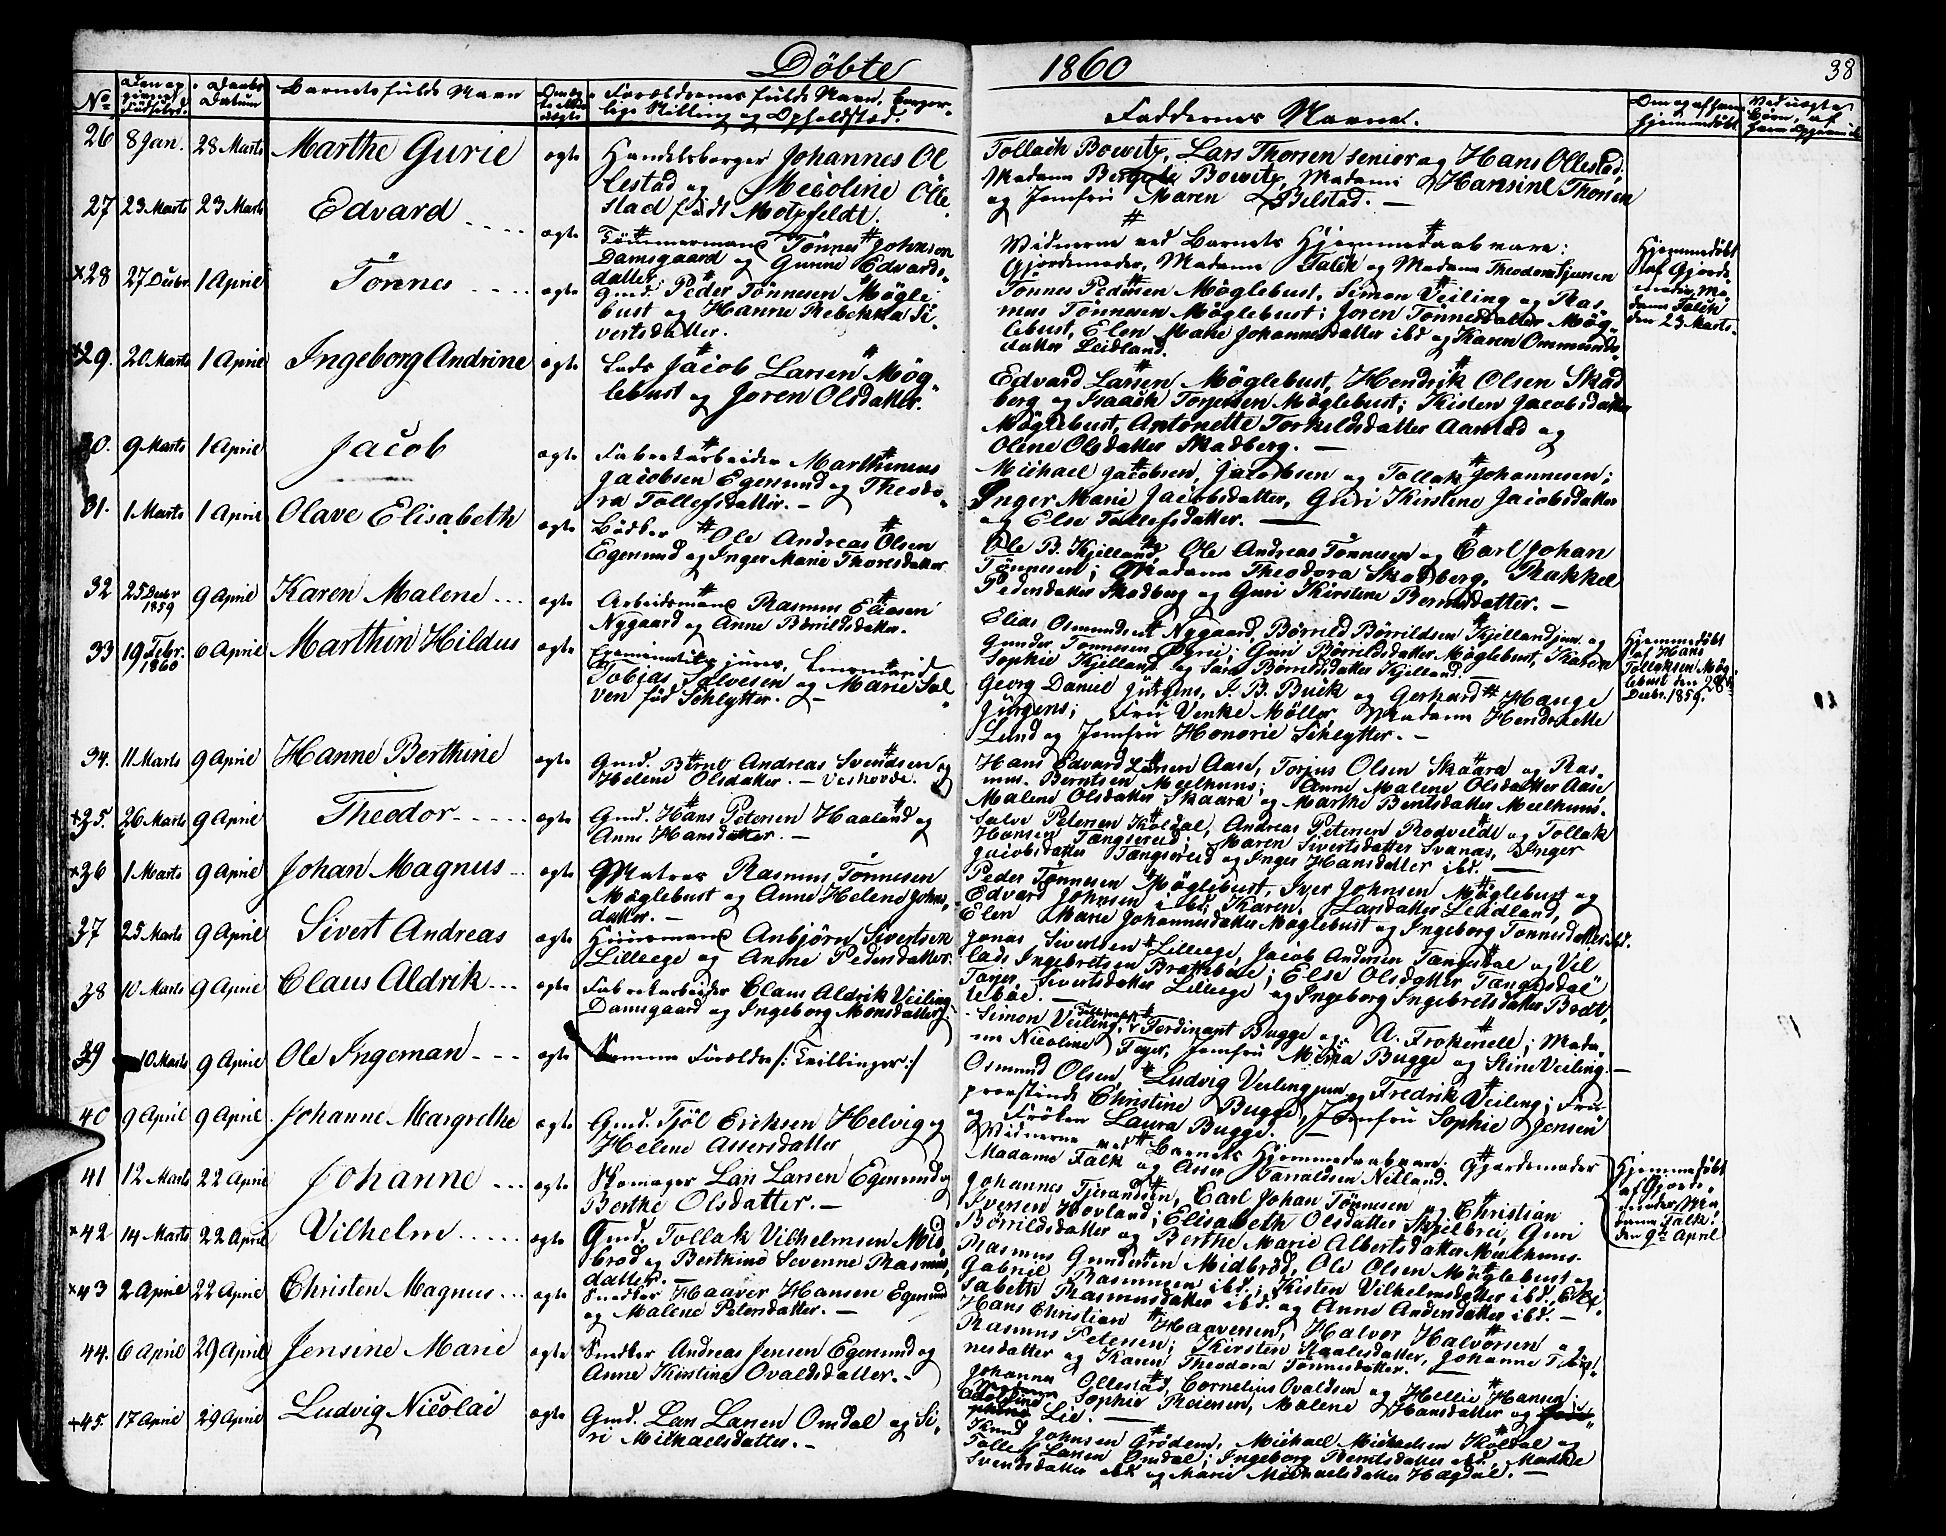 Döbte 1860 38
No
Barnets fulde Navn
Faddernes Navne.
26 8 Jan. 28 Marts Marthe Gurie ægte Handelsborger Johannes Ol
lestad og Nicoline Olle
stad født Motzfeldt.
Tollach Bowitz, Lars Thorsen senior og Hans Ollestad.
Madame Bowitz, Madame Hansine Thorsen
og Jomfru Maren Bilstad. —
27 23 Marts 23 Marts Edvard ægte Tömmermand Tönnes Johnsen
Damsgaard og Gunne Edvards-
datter.
Vidnerne ved Barnets Hjemmedaab vare:
Gjordemoder, Madame Falck og Madame Theodora
Hjemmedöbt
af Gjorde
moder, Ma
dame Falck
den 23 Marts.
×28 27 Decbr. 1 April Tönnes ægte Gmd. Peder Tönnesen Mögle-
bust og Hanne Rebekka Si-
vertsdatter.
Tönnes Pedersen Möglebust, Simon Veiling og Ras-
mus Tönnesen Möglebust; Joren Tönnesdatter Mög-
lebust, Elen Marie Johannesdatter ibd og Karen Ommunds-
datter Leidland.
×29. 20 Marts 1 April Ingeborg Andrine ægte Lods Jacob Larsen Mög-
lebust og Joren Olsdatter.
Edvard Larsen Möglebust, Hendrik Olsen Skad
berg og Isaack Torjersen Möglebust; Kisten Jacobsdatter
Möglebust, Antonette Torkeldsdatter Aarstad og
Olene Olsdatter Skadberg. —
30. 9 Marts 1 April Jacob ægte Fabrikarbeider Marthinius
Jacobsen Egersund og Theodo-
ra Tollefsdatter. —
Michael Jacobsen, Jacobsen og Tollak Johannesen;
Inger Marie Jacobsdatter, Guri Kirstine Jacobsdatter
og Else Tollefsdatter. —
31. 1 Marts 1 April Olave Elisabeth ægte Bödker Ole Andreas Olsen
Egersund og Inger Marie Thoresdatter
Ole B. Kjelland, Ole Andreas Tönnesen og Carl Johan
Tönnesen; Madame Theodora Skadberg, Rakkel
Pedersdatter Skadberg og Guri Kirstine Berntsdatter. —
32 25 Decbr 1859 9 April Karen Malene ægte Arbeidsmand Rasmus Eliasen
Nygaard og Anne Börrildsdatter.
Elias Osmundsen Nygaard, Börrild Börrildsen Kjelland jun. og
Gunder Tönnesen; Guri Börrildsdatter Möglebust, Karen
Sophie Kjelland og Sara Börrildsdatter Kjelland. —
Hjemmedöbt
af Hans
Tollaksen Mög
lebust den 28
Decbr. 1859.
33 19 Febr. 1860 6 April Marthin Hildus ægte Examinatus juris,
Tobias Salvesen og Marie Sal
ven fød Schlytter. —
Georg Daniel Jürgens, J. B. Buck og Gerhard Hauge
Jürgens; Fru Venke Möller, Madame Hendrikette
Lund og Jomfru Honorie Schlytter. —
34. 11 Marts 9 April Hanne Berthine ægte Gmd. Bernt Andreas Svendsen og
Helene Olsdatter. —
Hans Edvard Larsen Aase, Torjus Olsen Skaara og Ras-
mus Berntsen Meelhuus; Anne Malene Olsdatter Aase
Malene Olsdatter Skaara og Marthe Berntsdatter Meelhuus.
×35. 26 Marts 9 April Theodor ægte Gmd. Hans Petersen Haaland og
Anne Hansdatter. —
Salve Petersen Koldal, Andreas Petersen Rodvelde og Tollak
Hansen Tangsereid; Maren Sivertsdatter Svanæs, Inger
Jacobsdatter Tangsereid og Inger Hansdatter ibd. —
×36 1 Marts 9 April Johan Magnus ægte Matros Rasmus Tönnesen
Möglebust og Anne Helene Johns-
datter. —
Peder Tönnesen Möglebust, Iver Johnsen Möglebust og
Edvard Johnsen ibd; Karen Larsdatter Leidland,
Elen Marie Johannesdatter Möglebust og Ingeborg Tönnesdatter ibd.
37 25 Marts 9 April Sivert Andreas ægte Huusmand Anbjörn Sivertsen
Lilleege og Anne Pedersdatter.
Jonas Sivertsen Lilleege, Jacob Andersen Tangsdal og Vil
lads Ingebretsen Bratteböe; Else Olsdatter Tangsdal
Torjer Sivertsdatter Lilleege og Ingeborg Ingebretsdatter Brat-
teböe. —
38 10 Marts 9 April Claus Aldrik ægte Fabrikarbeider Claus Aldrik Veiling
Damsgaard og Ingeborg Monsdatter.
Simon Veiling, Ferdinant Bugge og A. Frokenell; Mada-
me Nicoline Feyer, Jomfru Maria Bugge og Stine Veiling. —
39 10 Marts 9 April Ole Ingeman ægte Samme Forældre /: Tvillinger :/
Osmund Olsen, Ludvig Veiling jun. og Fredrik Veiling; Fru
provstinde Christine Bugge, Jomfru Sophie Jensen
og Fröken Laura Bugge. —
40 9 April 9 April Johanne Margrethe ægte Gmd. Tjöl Eriksen Helvig og
Helene Assersdatter
Vidnerne ved Barnets Hjemmedaab vare: Gjordemoder
Madame Falk og Asser Tarraldsen Netland.
Hjemmedöbt
af Gjorde-
moder, Ma-
dame Falk
den 9de April
41 12 Marts 22 April Johanne ægte Skomager Lars Larsen Egersund og
Berthe Olsdatter. —
Johannes Tjerandsen, Carl Johan Tönnesen og Christian
Iversen Hovland; Elisabeth Olsdatter Skjelbrei, Guri
Börrildsdatter og Berthe Marie Albertsdatter Meelhuus.
×42 14 Marts 22 April Vilhelm ægte Gmd. Tollak Vilhelmsen Mid-
bröd og Berthine Severine Rasmus-
datter. —
Rasmus Gundersen Midbröd, Ole Olsen Möglebust og
Gabriel Rasmussen ibd.; Kisten Vilhelmsdatter ibd. Eli-
sabeth Rasmusdatter ibd. og Anne Andersdatter ibd. —
×43 2 April 22 April Christen Magnus ægte Snedker Haaver Hansen Egersund
og Malene Petersdatter. —
Hans Christian Haaversen, Halvor Halvorsen og
Rasmus Petersen; Kirsten Kaalsdatter, Johanne Tön-
nesdatter og Karen Theodora Tönnesdatter. —
44. 6 April 29 April Jensine Marie ægte Snedker Andreas Jensen Egersund og
Anne Kirstine Ovaldsdatter. —
Johannes Ollestad, Cornelius Ovaldsen og Hellie Hansen;
Madame Sophie Roiensen, Malene Hansdatter og
Adolphine Lie. —
×45. 17 April 29 April Ludvig Nicolai ægte Gmd. Lars Larsen Omdal og Si-
ri Michaelsdatter. —
Knud Johnsen Grödem, Michael Michaelsen Koldal og
Tollef Larsen Omdal; Ingeborg Berntsdatter ibd, Marthe
Svendsdatter ibd og Marie Michaelsdatter Hægdal. —